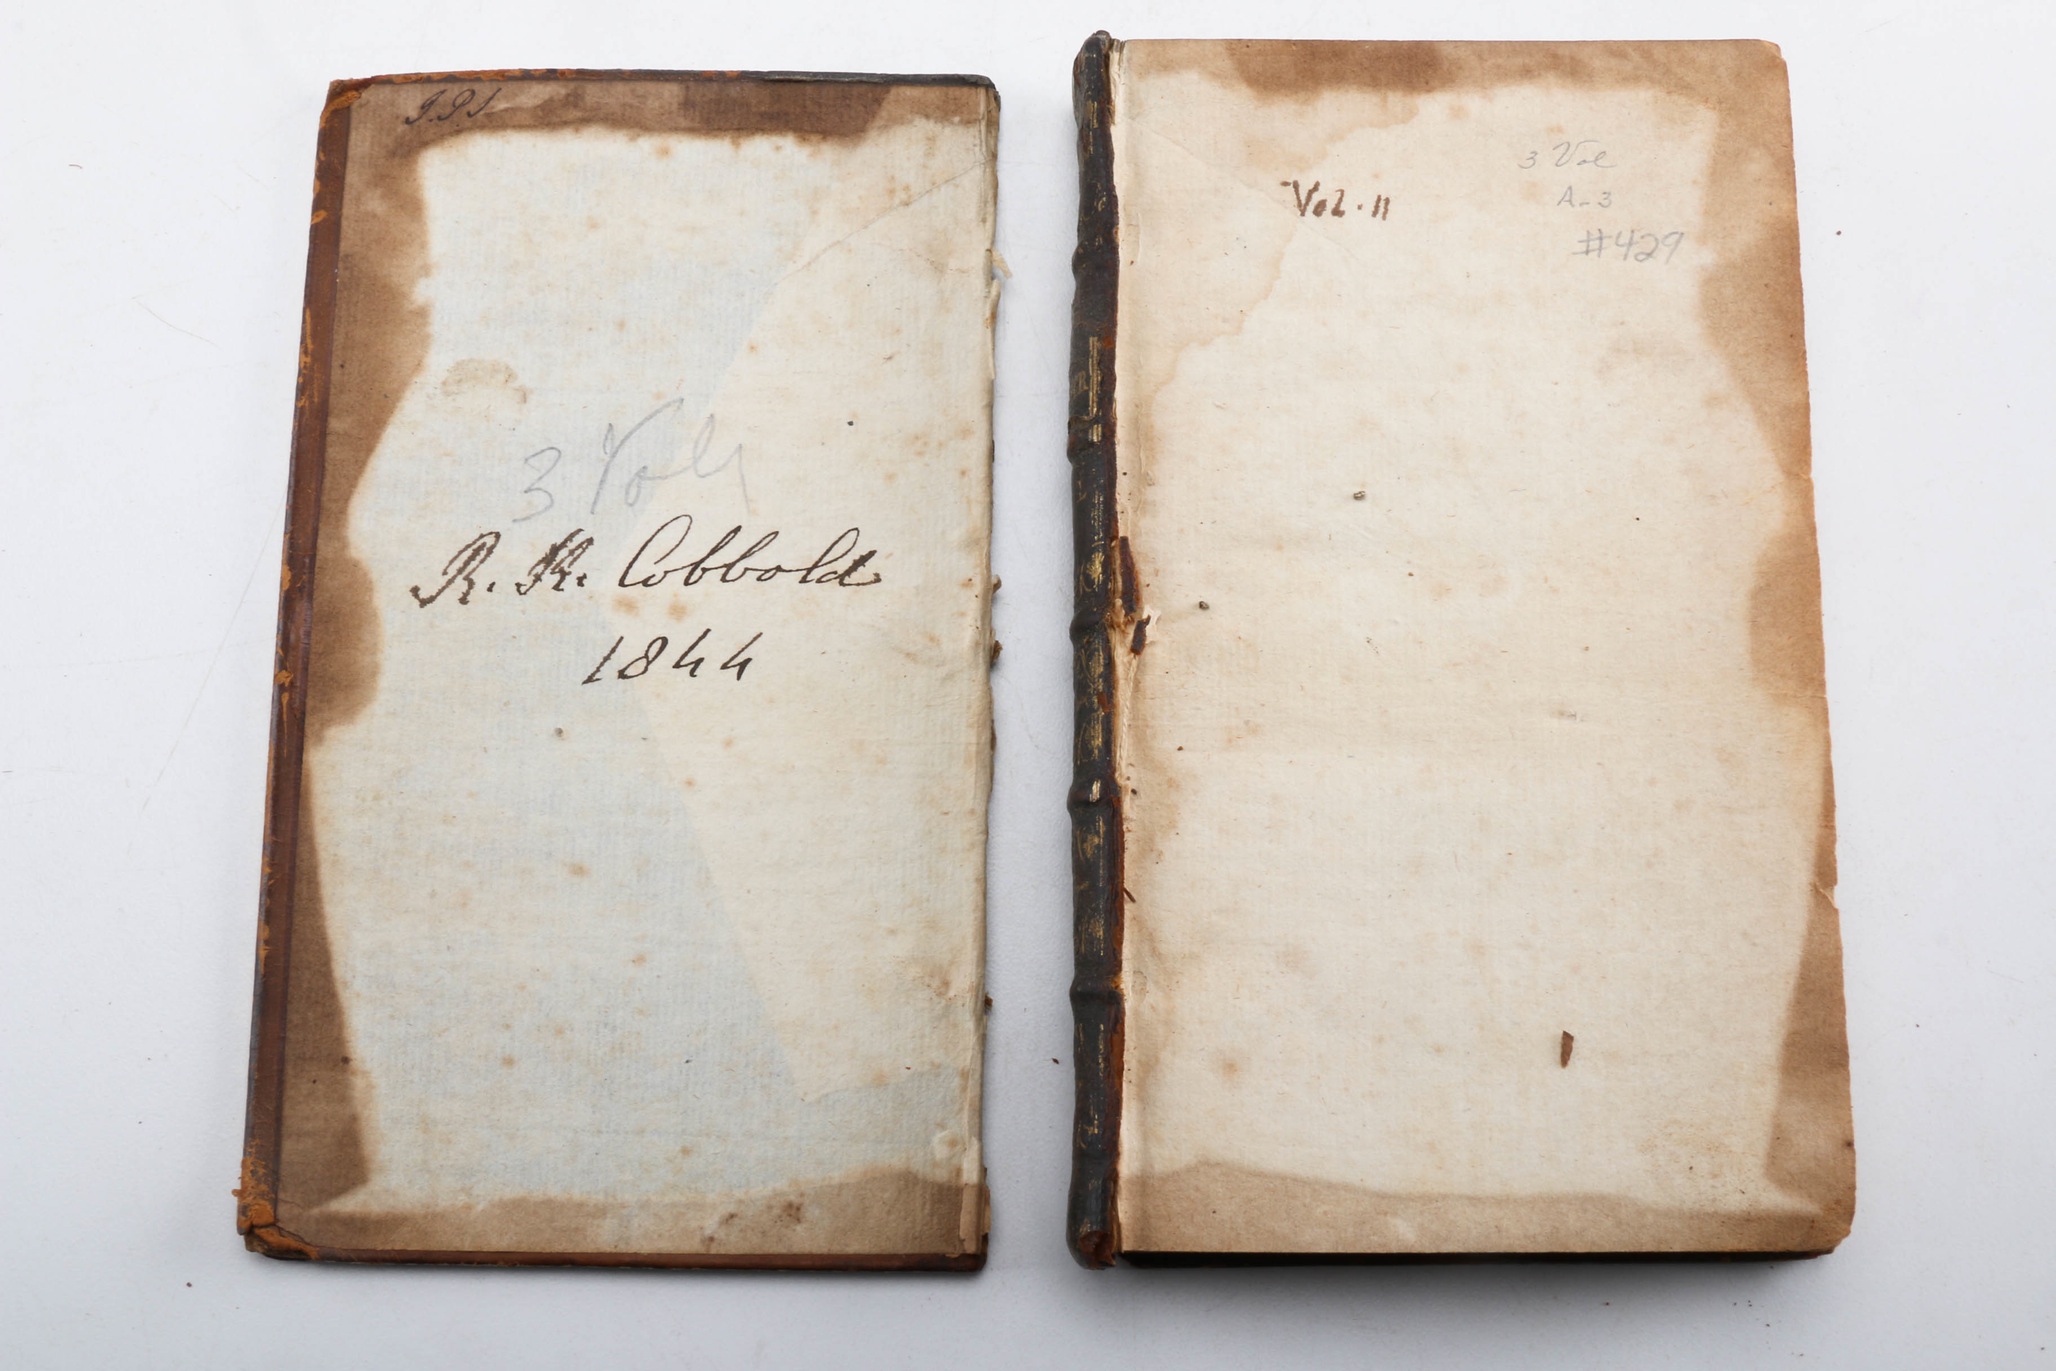 3 Vols
R. K. Cobbold
1844
3 Vol
A-3
Vol. II
#429